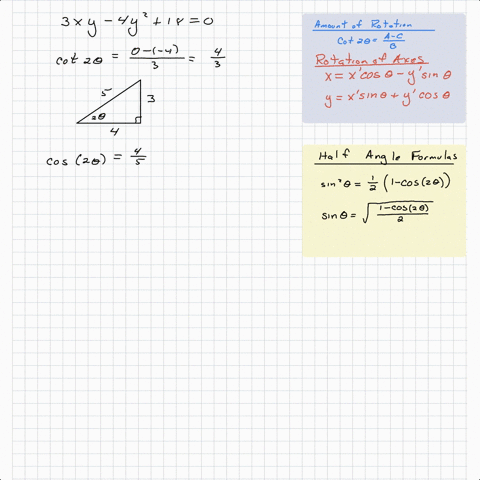 3xy − 4y² + 18 = 0
cot 2θ = 0−(−4)/3 = 4/3
5
3
2θ
4
cos (2θ) = 4/5
Amount of Rotation
Cot 2θ = A−C/B
Rotation of Axes
x = x'cos θ − y'sin θ
y = x'sin θ + y'cos θ
Half Angle Formulas
sin²θ = 1/2 (1−cos(2θ))
sin θ = √(1−cos(2θ)/2)